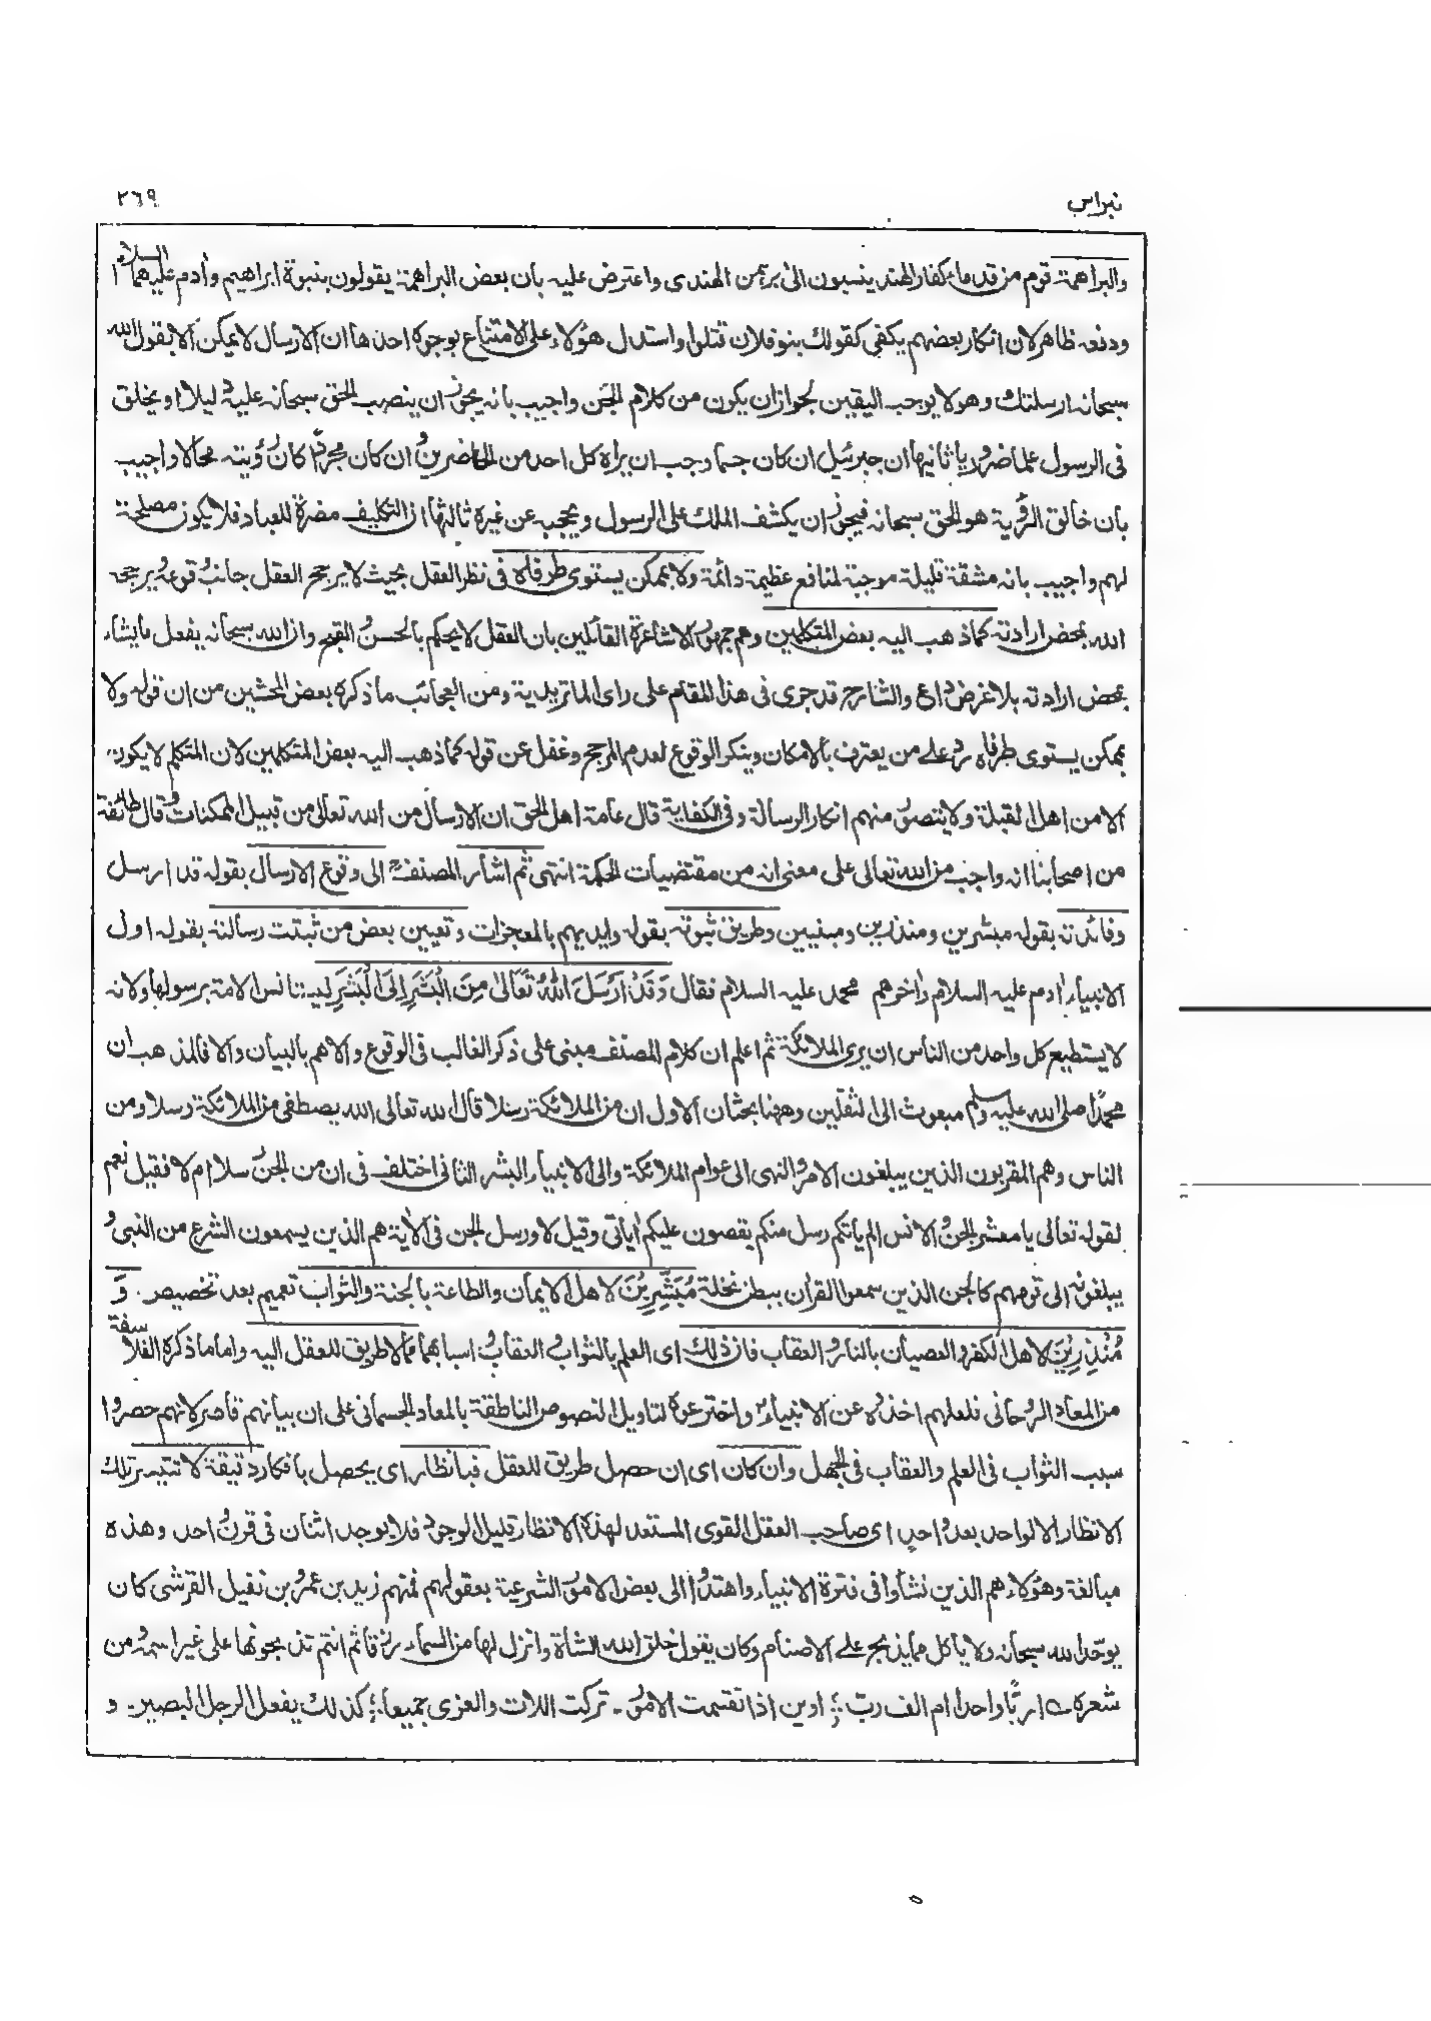 نبراس
٢٦٩
والبراهمة قوم من قدماء كفار الهند ينسبون الى برهمن الهندى واعترض عليه بان بعض البراهمة يقولون بنبوة ابراهيم وأدم عليهما السلام
ودفعه ظاهر لان انكار بعضهم يكفى كقولك بنو فلان قتلوا واستدل هؤلاء على الامتناع بوجوه احدها ان الارسال لا يمكن الا بقول الله
سبحانه ارسلتك وهو لا يوجب اليقين لجواز ان يكون من كلام الجن واجيب بانه يجوز ان ينصب الحق سبحانه عليه دليلا او يخلق
فى الرسول علما ضروريا ثانيها ان جبرئيل ان كان جسما وجب ان يراه كل احد من الحاضرين وان كان مجردا كان رؤيته محالا واجيب
بان خالق الرؤية هو الحق سبحانه فيجوز ان يكشف الملك على الرسول ويحجبه عن غيره ثالثها ان التكليف مضرة للعباد فلا يكون مصلحة
لهم واجيب بانه مشقة قليلة موجبة لمنافع عظيمة دائمة ولا بممكن يستوى طرفاه فى نظر العقل بحيث لا يرجح العقل جانب وقوعه يرجحه
الله بمحض ارادته كما ذهب اليه بعض المتكلمين وهم جمهور الاشاعرة القائلين بان العقل لا يحكم بالحسن والقبح وان الله سبحانه يفعل ما يشاء
بمحض ارادته بلا غرض داع والشارح قد جرى فى هذا المقام على راى الماتريدية ومن العجائب ما ذكره بعض المحشين من ان قوله ولا
بممكن يستوى طرفاه رد على من يعترف بالامكان وينكر الوقوع لعدم المرجح وغفل عن قوله كما ذهب اليه بعض المتكلمين لان المتكلم لا يكون
الا من اهل القبلة ولا يتصور منهم انكار الرسالة وفى الكفاية قال عامة اهل الحق ان الارسال من الله تعالى من قبيل الممكنات وقال طائفة
من اصحابنا انه واجب من الله تعالى على معنى انه من مقتضيات الحكمة انتهى ثم اشار المصنف الى وقوع الارسال بقوله قد ارسل
وفائدته بقوله مبشرين ومنذرين ومبنيين وطريق ثبوته بقوله وايدهم بالمعجزات وتعيين بعض من ثبتت رسالته بقوله اول
الانبياء أدم عليه السلام وأخرهم محمد عليه السلام فقال وَقَدْ اَرْسَلَ اللّٰهُ تَعَالٰى مِنَ الْبَشَرِ اِلَى الْبَشَرِ ليستانس الامة برسولها ولانه
لا يستطيع كل واحد من الناس ان يرى الملائكة ثم اعلم ان كلام المصنف مبنى على ذكر الغالب فى الوقوع والاهم بالبيان والا فالمذهب ان
محمدا صلى الله عليه وسلم مبعوث الى الثقلين وههنا بحثان الاول ان من الملائكة رسلا قال الله تعالى الله يصطفى من الملائكة رسلا ومن
الناس وهم المقربون الذين يبلغون الامر والنهى الى عوام الملائكة والى الانبياء البشر الثانى اختلف فى ان من الجن رسلا ام لا فقيل نعم
لقوله تعالى يا معشر الجن والانس الم ياتكم رسل منكم يقصون عليكم أياتى وقيل لا ورسل الجن فى الأية هم الذين يسمعون الشرع من النبى و
يبلغونه الى قومهم كالجن الذين سمعوا القرأن ببطن نخلة مُبَشِّرِيْنَ لاهل الايمان والطاعة بالجنة والثواب تعميم بعد تخصيص. وَ
مُنْذِرِيْنَ لاهل الكفر والعصيان بالنار والعقاب فان ذلك اى العلم بالثواب والعقاب واسبابهما مما لا طريق للعقل اليه واما ما ذكره الفلاسفة
من المعاد الروحانى فلعلهم اخذوه عن الانبياء واخترعوه لتاويل النصوص الناطقة بالمعاد الجسمانى على ان بيانهم قاصر لانهم حصروا
سبب الثواب فى العلم والعقاب فى الجهل وان كان اى ان حصل طريق للعقل فبانظار اى يحصل بافكار دقيقة لا تتيسر تلك
الانظار الا لواحد بعد واحد اى صاحب العقل القوى المستعد لهذه الانظار قليل الوجود فلا يوجد اثنان فى قرن واحد وهذه
مبالغة وهؤلاء هم الذين نشأوا فى فترة الانبياء واهتدوا الى بعض الامور الشرعية بعقولهم فمنهم زيد بن عمرو بن نفيل القرشى كان
يوحد الله سبحانه ولا ياكل مما يذبح على الاصنام وكان يقول خلق الله الشاة وانزل لها من السماء رزقا ثم انتم تذبحونها على غير اسمه ومن
شعره ؎ اربًّا واحدا ام الف ربّ ؛ ادين اذا تقسمت الامور ۔ تركت اللات والعزى جميعا ؛ كذلك يفعل الرجل البصير ۔ و